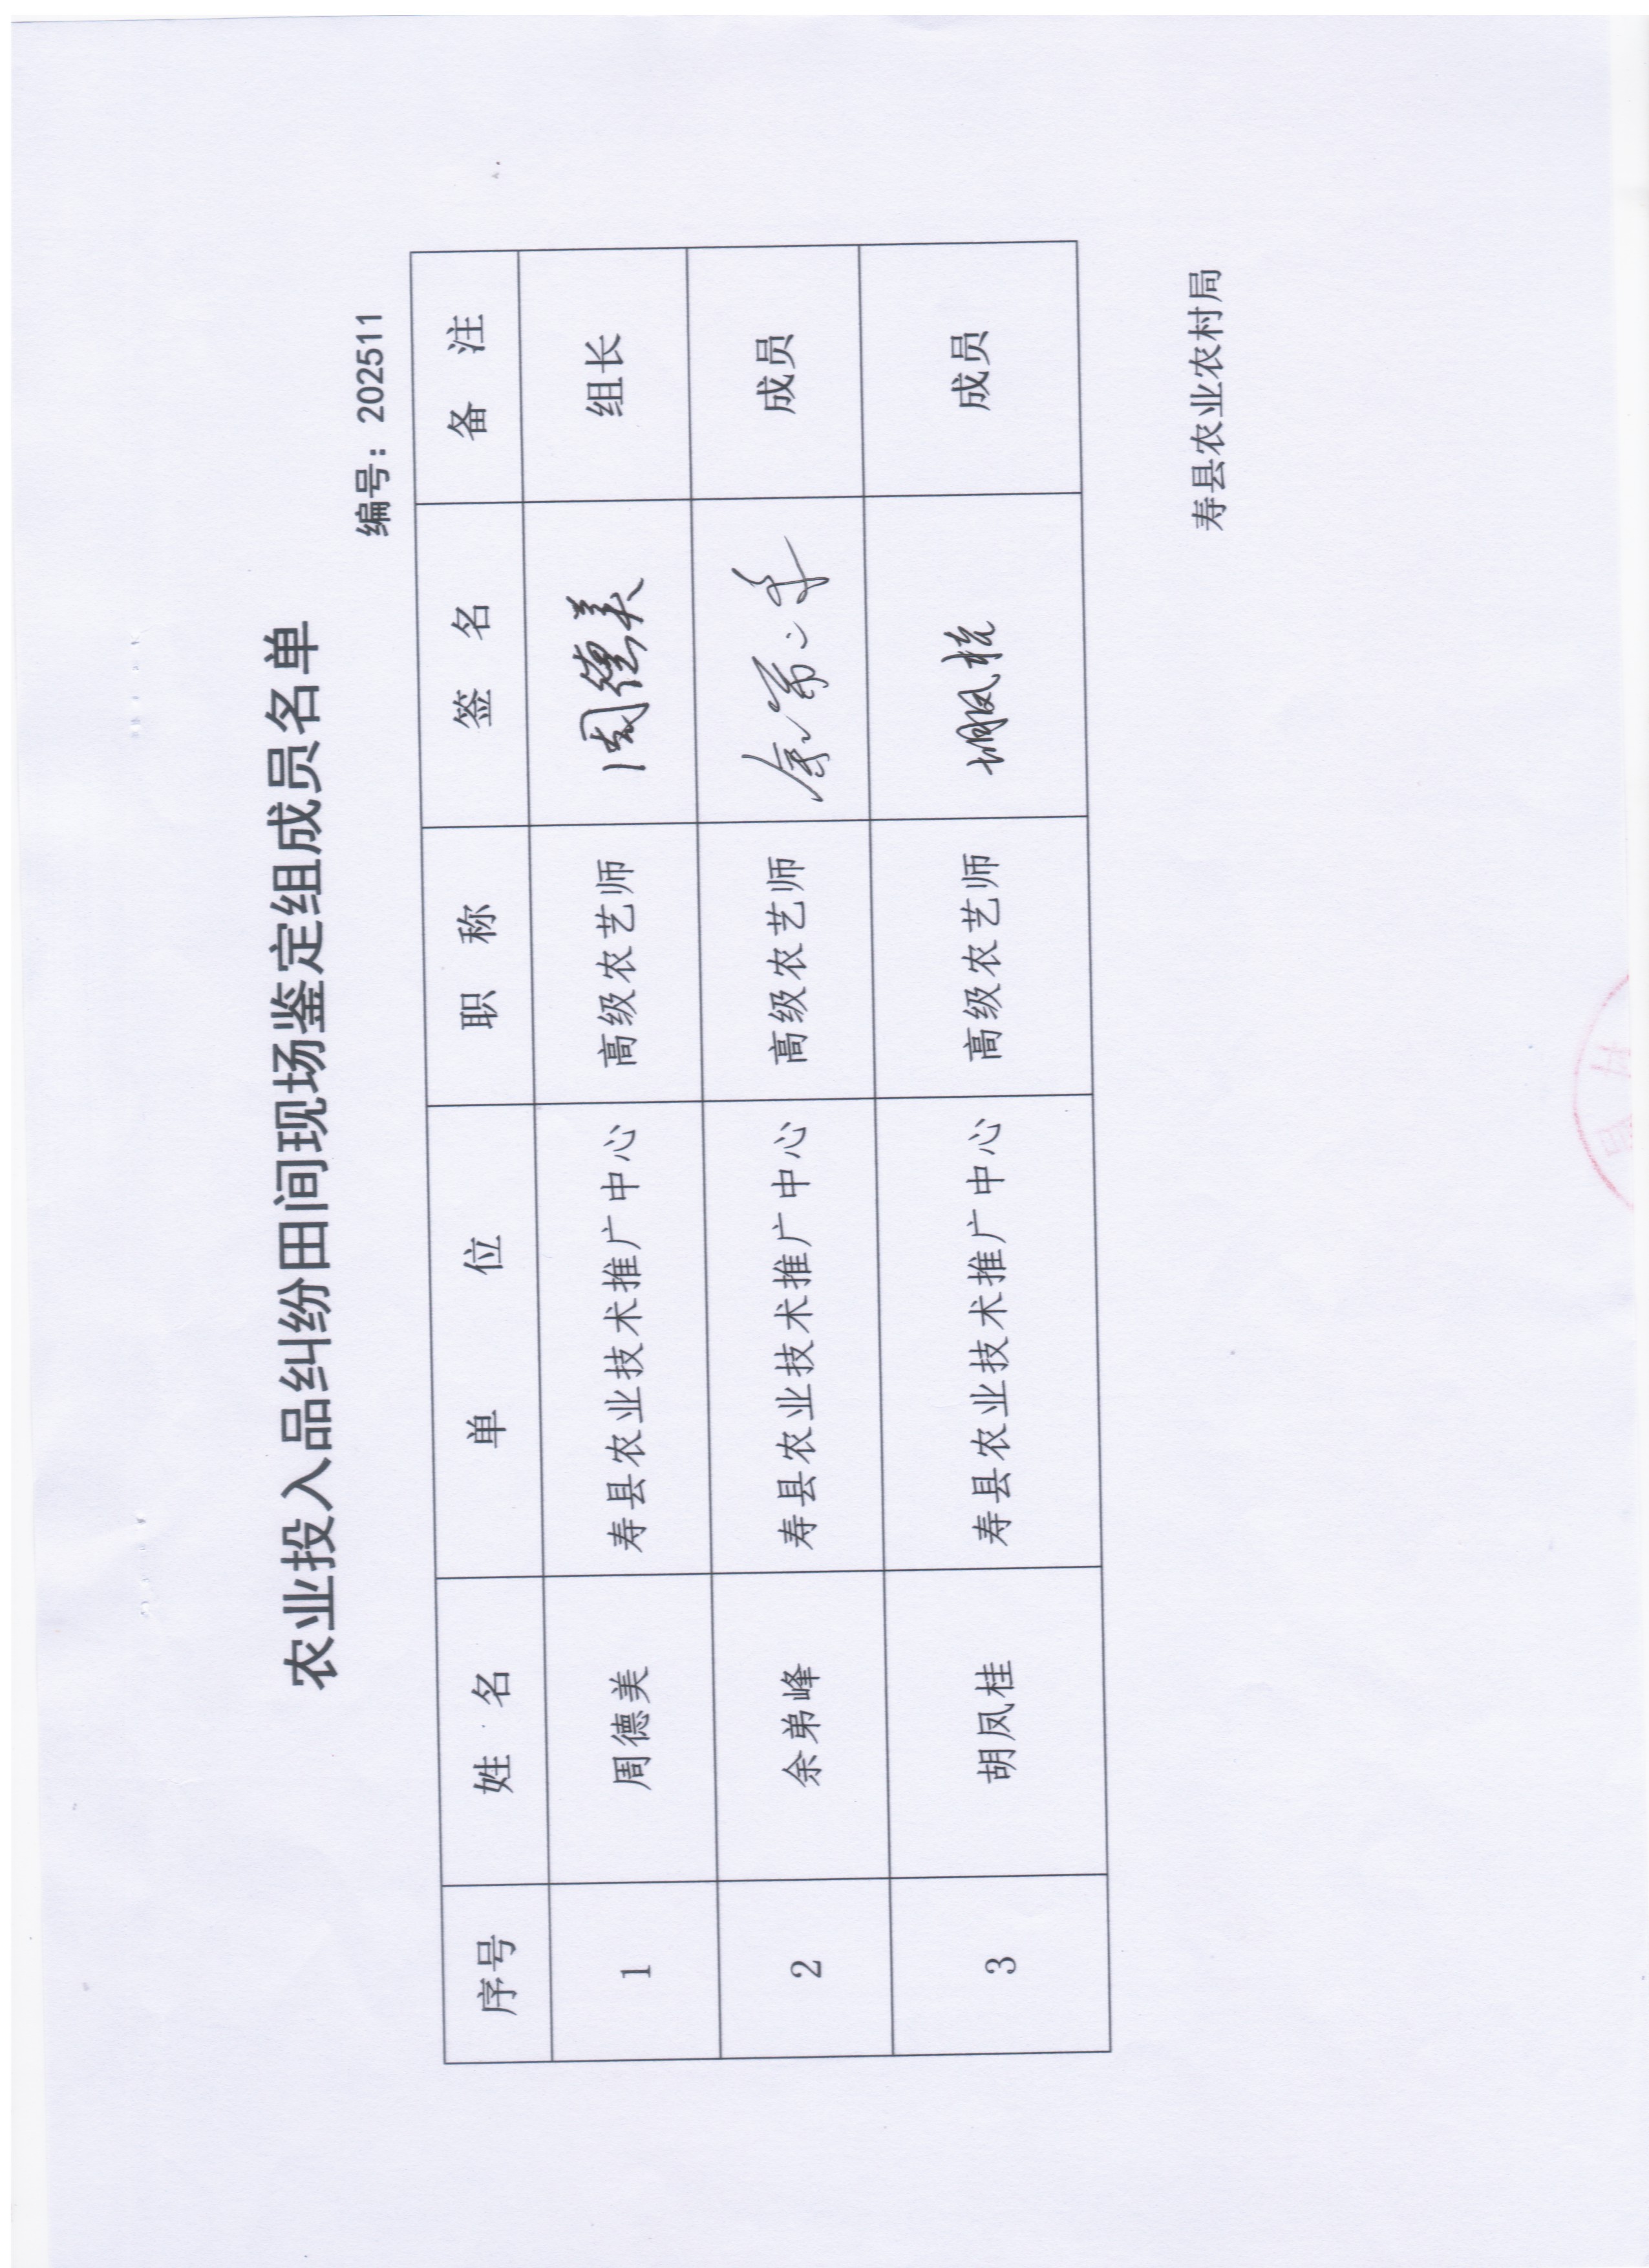 农业投入品纠纷田间现场鉴定组成员名单
编号：202511
序号 姓 名 单 位 职 称 签 名 备 注
1 周德美 寿县农业技术推广中心 高级农艺师 周德美 组长
2 余弟峰 寿县农业技术推广中心 高级农艺师 成员
3 胡凤桂 寿县农业技术推广中心 高级农艺师 胡凤桂 成员
寿县农业农村局